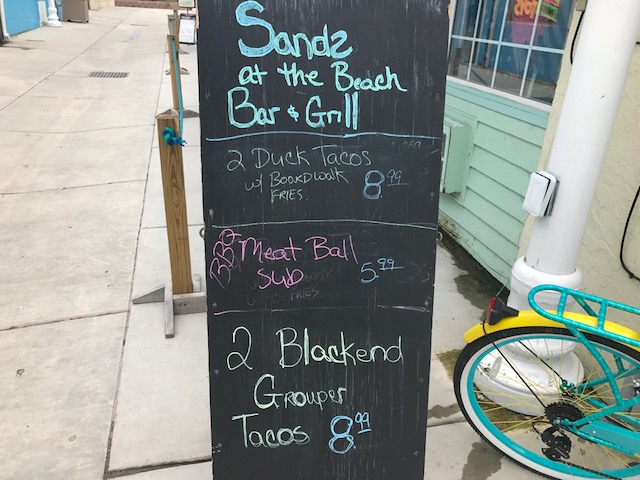 Sandz
at the Beach
Bar & Grill
2 Duck Tacos
w/ Boardwalk
Fries. 8.99
Meat Ball
Sub 5.99
Fries
2 Blackend
Grouper
Tacos 8.99